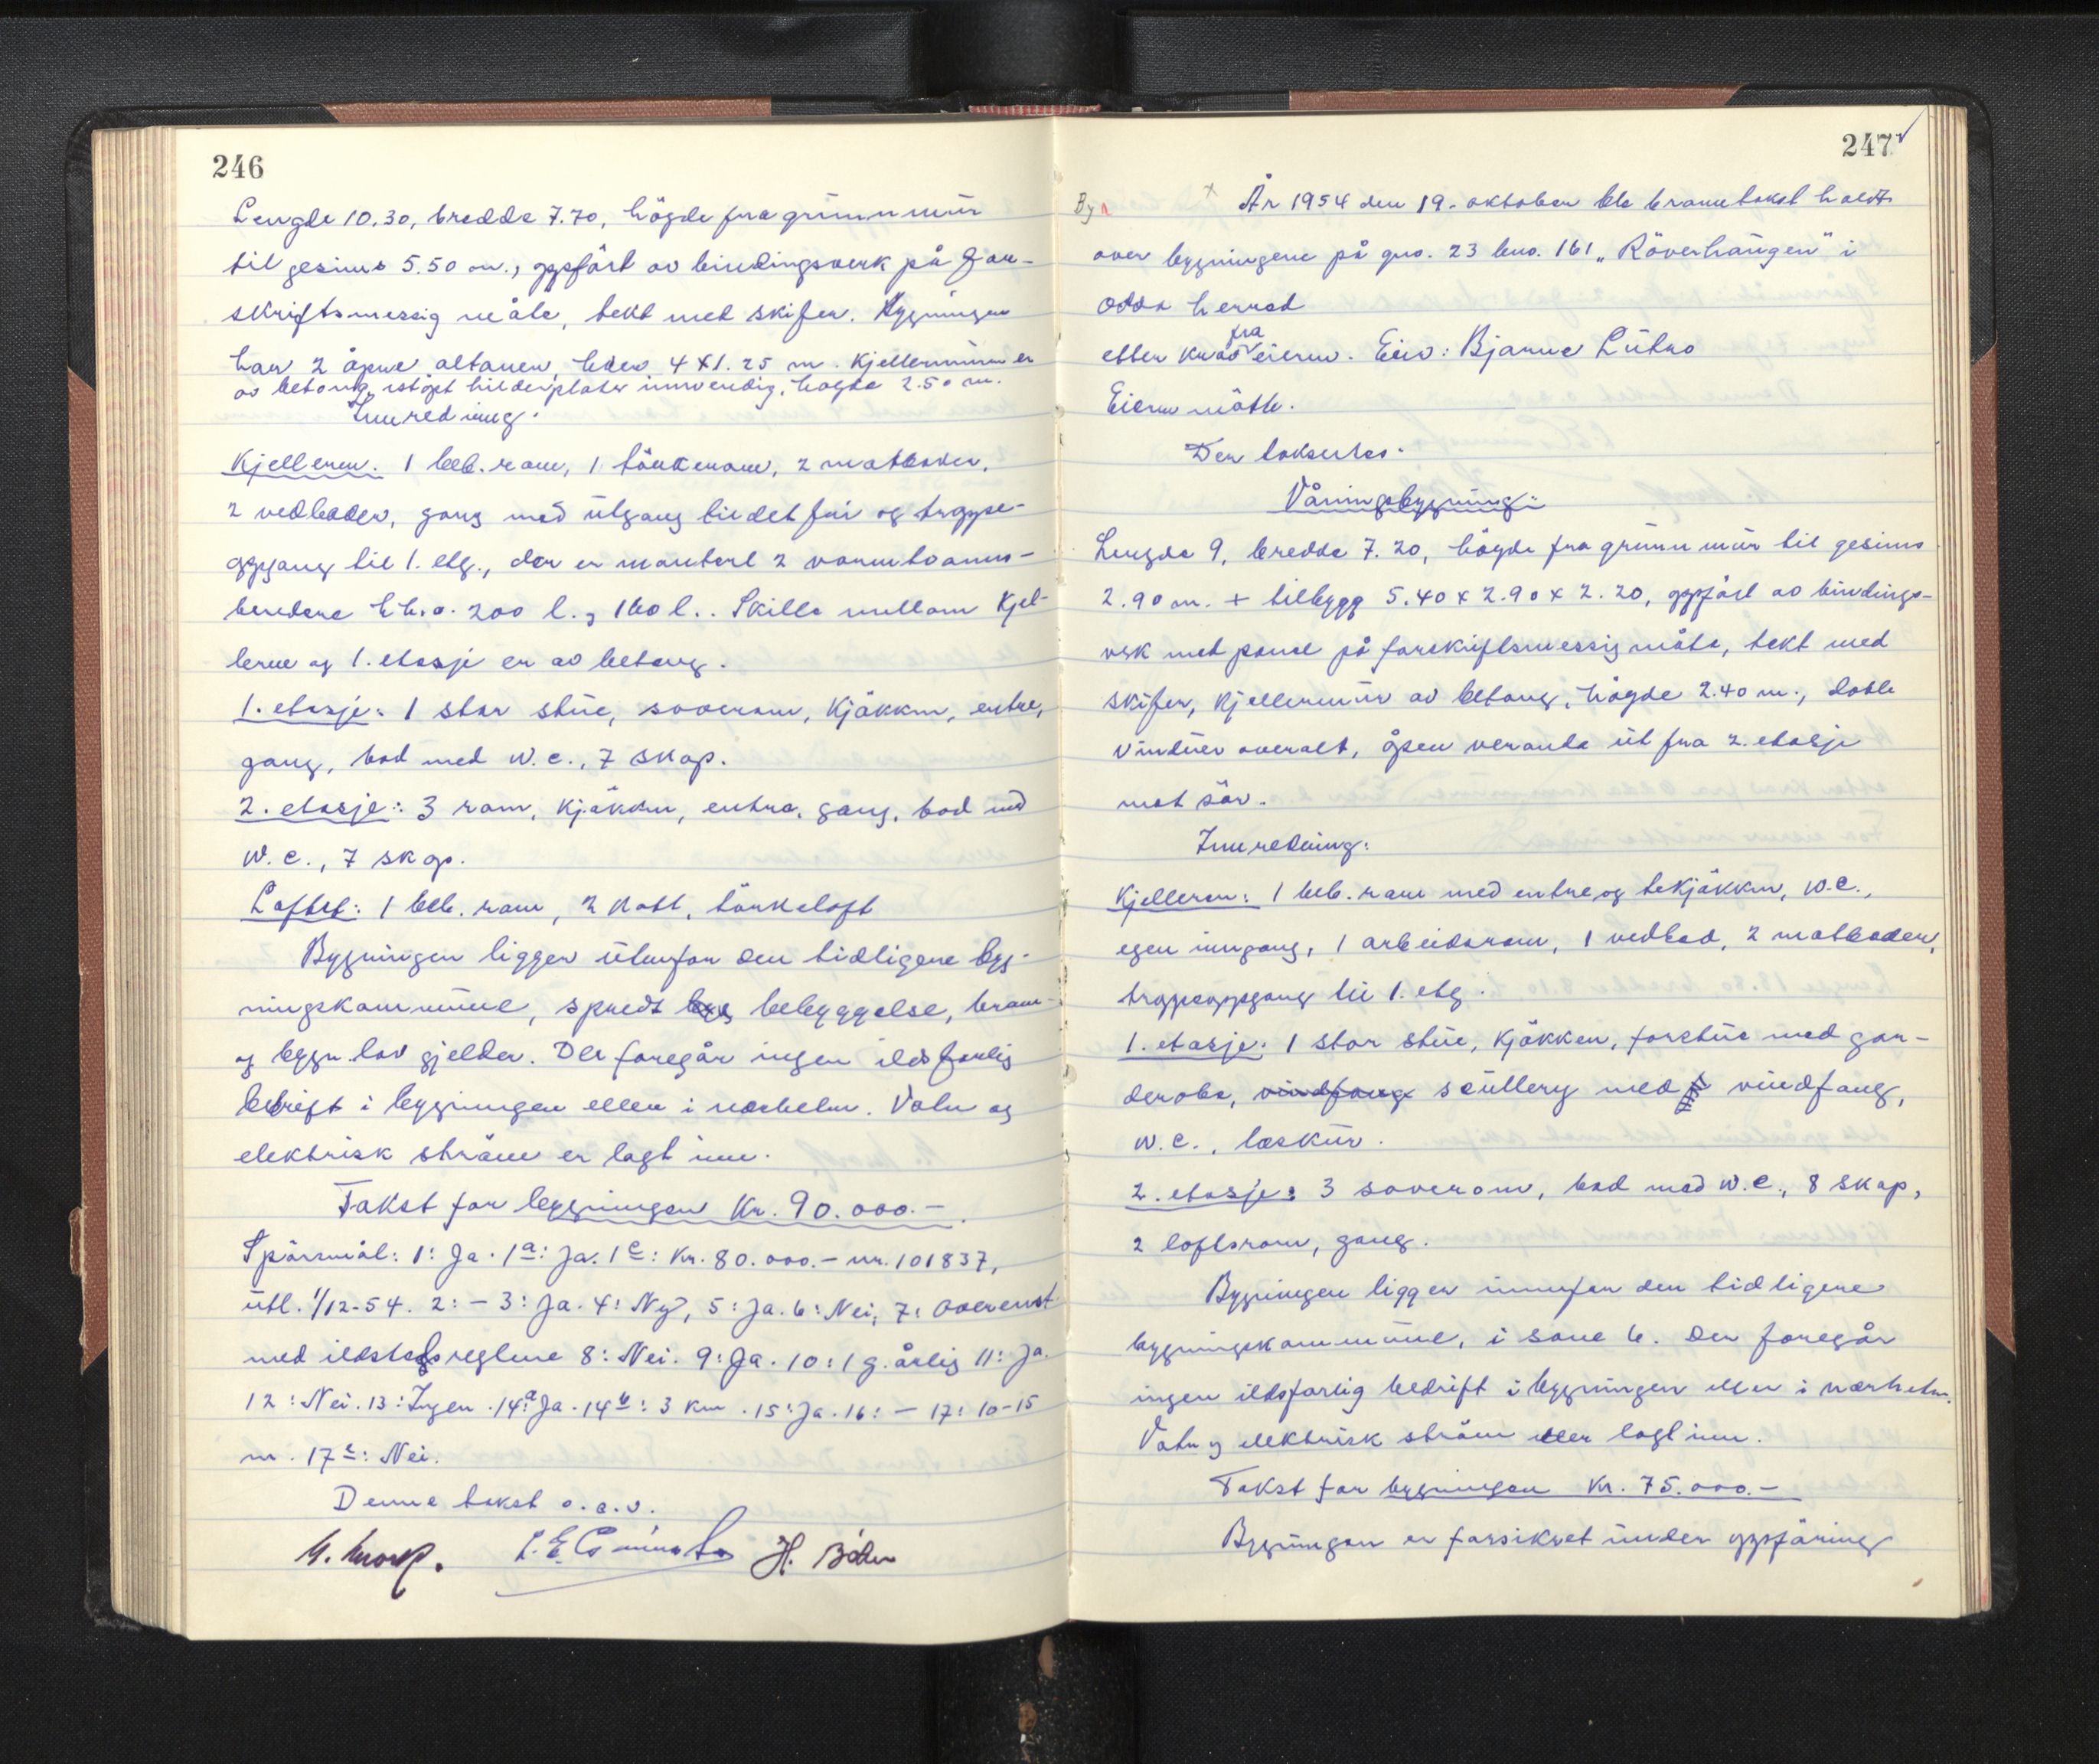 246
Lengde 10.30, bredde 7.70, högde fra grunnmur
til gesims 5.50 m., oppfört av bindingsverk på for-
skriftsmessig måte, tekt med skifer. Bygningen
har 2 åpne altaner, hver 4 x 1.25 m. Kjellermuren er
av betong, istöpt plater innvendig, högde 2.50 m.
Innredning:
Kjelleren. 1 beb. rom, 1 törkerom, 2 matboder,
2 vedboder, gang med utgang til det fri og trappe-
oppgang til 1. etg., der er montert 2 varmtvanns-
beredere h.h.v. 200 l., 160 l.. Skille mellom kjel-
leren og 1. etasje er av betong.
1. etasje: 1 stor stue, soverom, kjökken, entre,
gang, bad med W.C., 7 skap.
2. etasje: 3 rom, kjökken, entre, gang, bad med
W.C., 7 skap.
Loftet: 1 beb. rom, 2 kott, törkeloft
Bygningen ligger utenfor den tidligere byg-
ningskommune, spredt byg bebyggelse, brann-
og bygn.lov gjelder. Det foregår ingen ildsfarlig
bedrift i bygningen eller i nærheten. Vatn og
elektrisk ström er lagt inn.
Takst for bygningen Kr. 90.000.-
Spörsmål: 1: Ja. 1a: Ja. 1c: Kr. 80.000.- nr. 101837,
utl. 1/12-54. 2: - 3: Ja. 4: Ny, 5: Ja. 6: Nei, 7: Overenst
med ildstedsreglene 8: Nei. 9: Ja. 10: 1 g. årlig 11: Ja.
12: Nei. 13: Ingen. 14a: Ja. 14b: 3 km. 15: Ja. 16: - 17: 10-15
m. 17c: Nei.
Denne takst o.s.v.
H.
247
Byn
x År 1954 den 19. oktober ble branntakst holdt
over bygningene på gno. 23 bno. 161 „Röverhaugen" i
Odda herred
etter krav fra eieren. Eier: Bjarne Lutro
Eieren mötte.
Der takseres:
Våningsbygning:
Lengde 9, bredde 7.20, högde fra grunnmur til gesims
2.90 m. + tilbygg 5.40 x 2.90 x 2.20, oppfört av bindings-
verk med panel på forskriftsmessig måte, tekt med
skifer, kjellermur av betong, högde 2.40 m., doble
vinduer overalt, åpen veranda ut fra 2. etasje
mot sör.
Innredning:
Kjelleren: 1 beb. rom med entre og tekjökken, W.C.,
egen inngang, 1 arbeidsrom, 1 vedbod, 2 matboder,
trappeoppgang til 1. etg.
1. etasje: 1 stor stue, kjökken, forstue med gar-
derobe, vindfang scullery med vindfang,
W.C., leskur.
2. etasje: 3 soverom, bad med W.C., 8 skap,
2 loftsrom, gang.
Bygningen ligger innenfor den tidligere
bygningskommune, i sone 6. Der foregår
ingen ildsfarlig bedrift i bygningen eller i nærheten.
Vatn og elektrisk ström er lagt inn.
Takst for bygningen Kr. 75.000.-
Bygningen er forsikret under oppföring